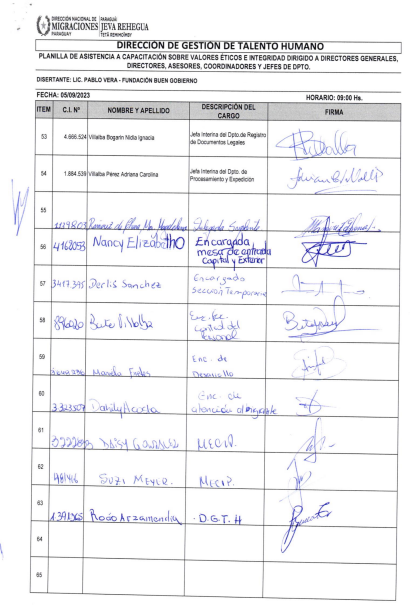 DIRECCIÓN NACIONAL DE
MIGRACIONES
PARAGUAY
PARAGUÁI
JEVA REHEGUA
TETÃ REMIMOĨNDY
DIRECCIÓN DE GESTIÓN DE TALENTO HUMANO
PLANILLA DE ASISTENCIA A CAPACITACIÓN SOBRE VALORES ÉTICOS E INTEGRIDAD DIRIGIDO A DIRECTORES GENERALES,
DIRECTORES, ASESORES, COORDINADORES Y JEFES DE DPTO.
DISERTANTE: LIC. PABLO VERA - FUNDACIÓN BUEN GOBIERNO
FECHA: 05/09/2023 HORARIO: 09:00 Hs.
ITEM C.I. Nº NOMBRE Y APELLIDO DESCRIPCIÓN DEL CARGO FIRMA
53 4.666.524 Villalba Bogarin Nidia Ignacia Jefa Interina del Dpto.de Registro
de Documentos Legales
54 1.884.539 Villalba Pérez Adriana Carolina Jefa Interina del Dpto. de
Procesamiento y Expedición
55
56 4168053 Nancy Elizabeth O Encargada
mesa de entrada
Capital y Exterior
57 3417395 Derlis Sanchez Encargado
Sección Temporaria
58 Beto Villalba
59 Enc. de
Desarrollo
60 3323507 Dandy Acosta Enc. de
atención al migrante
61 MECIP.
62 Suzi Meyer. MECIP.
63 Rocío Arzamendia - D.G.T.H
64
65